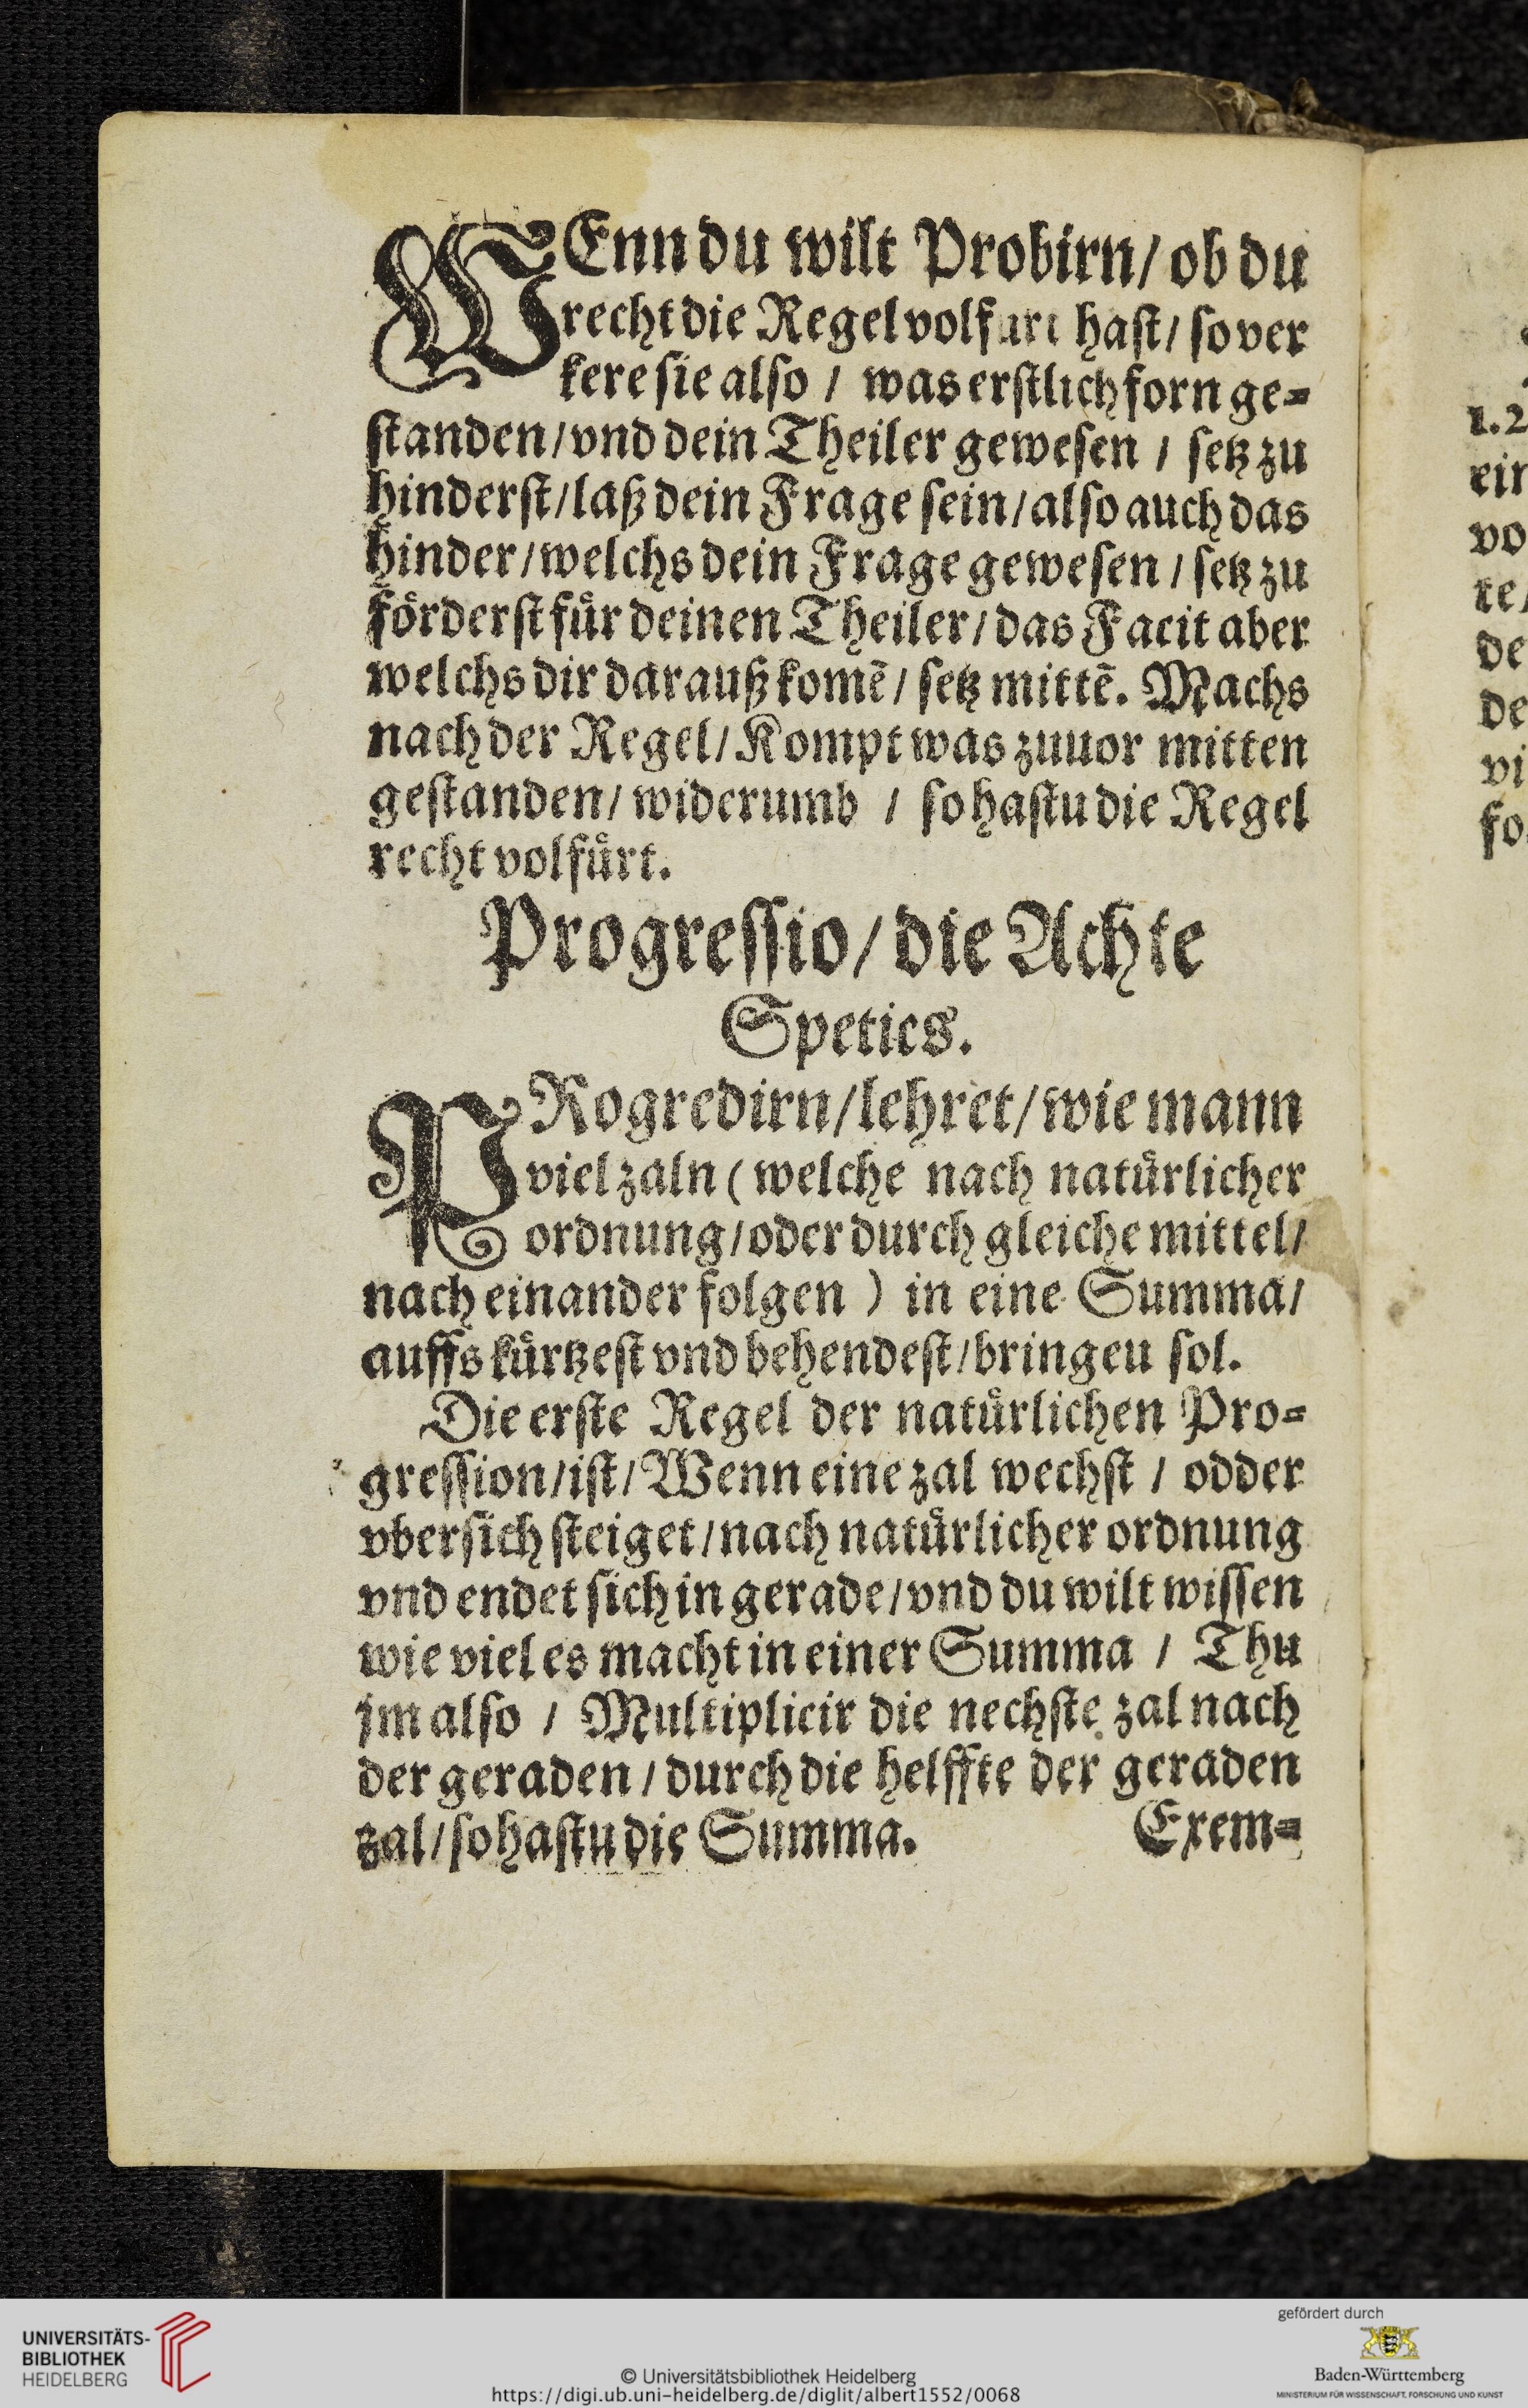 WEnn du wilt Probirn/ ob du
recht die Regel volfürt hast/ so ver
kere sie also / was erstlich forn ge=
standen/ vnd dein Theiler gewesen / setz zu
hinderst/ laß dein Frage sein/ also auch das
hinder/ welchs dein Frage gewesen / setz zu
förderst für deinen Theiler/ das Facit aber
welchs dir darauß komē/ setz mittē. Machs
nach der Regel/ Kompt was zuuor mitten
gestanden/ widerumb / so hastu die Regel
recht volfürt.
Progressio/ die Achte
Speties.
PRogredirn/ lehret/ wie mann
viel zaln ( welche nach natürlicher
ordnung/ oder durch gleiche mittel/
nach einander folgen ) in eine Summa/
auffs kürtzest vnd behendest/ bringeu sol.
Die erste Regel der natürlichen Pro=
gression/ ist/ Wenn eine zal wechst / odder
vbersich steiget/ nach natürlicher ordnung
vnd endet sich in gerade/ vnd du wilt wissen
wie viel es macht in einer Summa / Thu
jm also / Multiplicir die nechste zal nach
der geraden / durch die helffte der geraden
zal/ so hastu die Summa. Exem=
1.2
ein
vo
te/
de
de
vi
so
UNIVERSITÄTS-
BIBLIOTHEK
HEIDELBERG
© Universitätsbibliothek Heidelberg
https://digi.ub.uni-heidelberg.de/diglit/albert1552/0068
gefördert durch
Baden-Württemberg
MINISTERIUM FÜR WISSENSCHAFT, FORSCHUNG UND KUNST